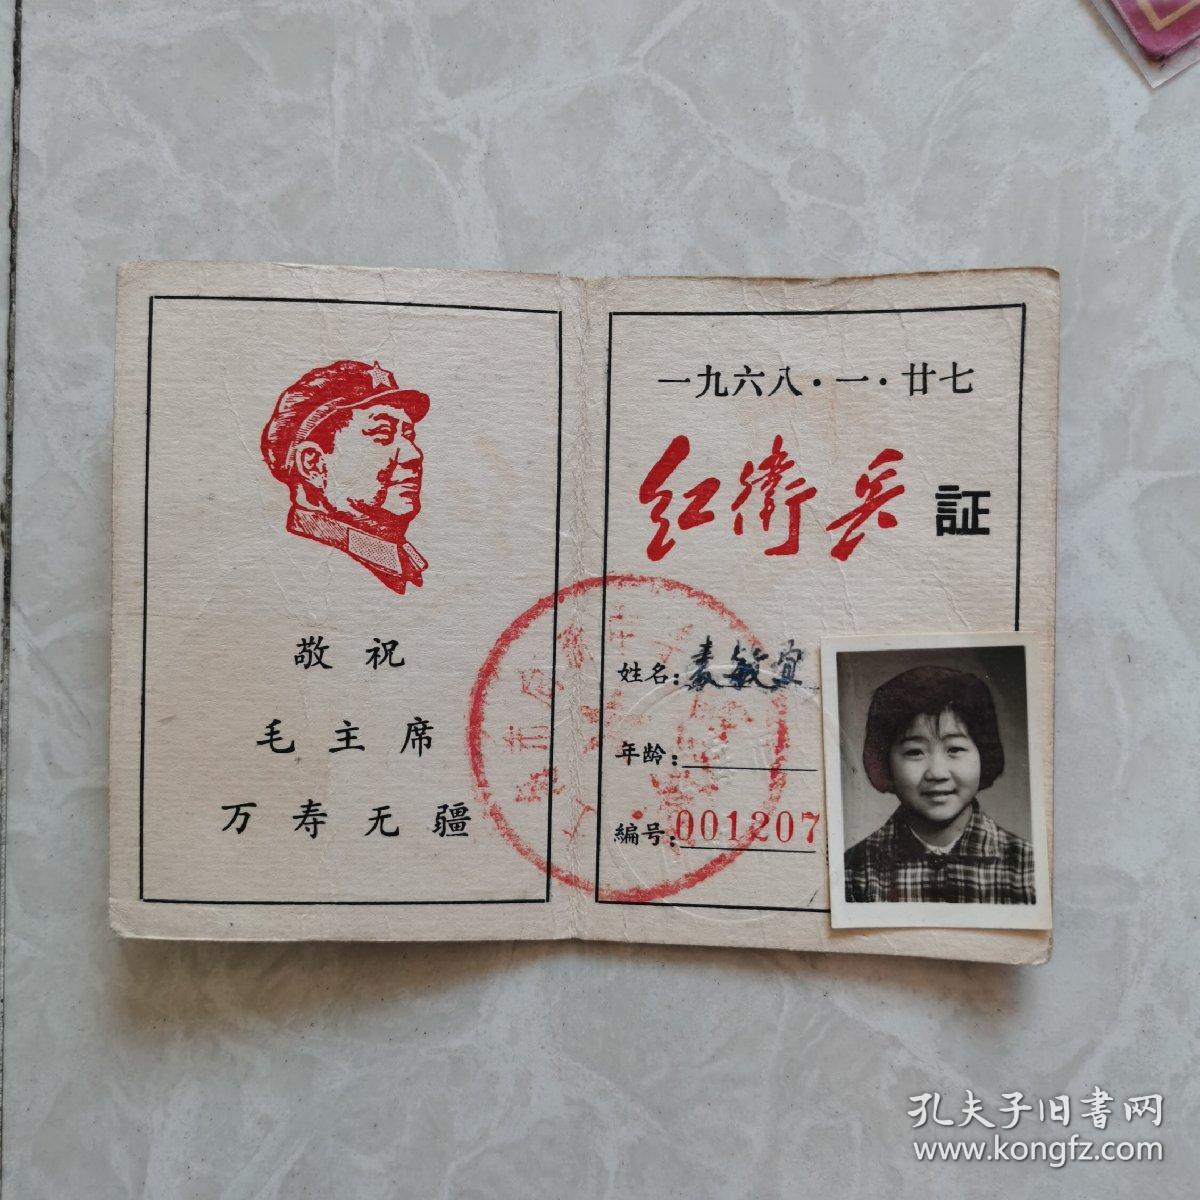 敬祝
毛主席
万寿无疆
一九六八·一·廿七
红卫兵証
姓名:麦敏宜
年龄:
编号:001207
孔夫子旧書网
www.kongfz.com